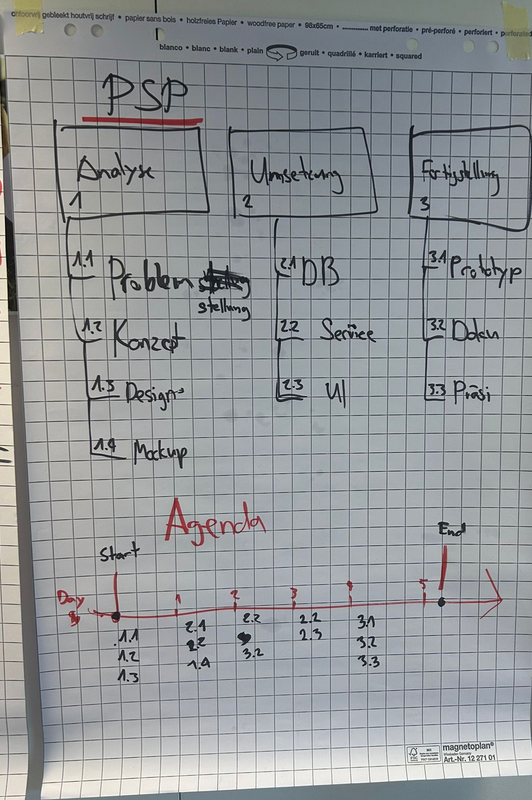 gebleekt houtvrij schrift • papier sans bois • holzfreies Papier • woodfree paper • 98x65cm • met perforatie • pré-perforé • perforiert •
blanco • blanc • blank • plain geruit • quadrillé • karriert • squared
PSP
Analyse
1
Umsetzung
2
Fertigstellung
3
1.1 Problem
stellung
1.2 Konzept
1.3 Design
1.4 Mockup
2.1 DB
2.2 Service
2.3 UI
3.1 Prototyp
3.2 Doku
3.3 Präsi
Agenda
Start
End
Day 1 2 3 4 5
1.1
1.2
1.3
2.1
2.2
1.4
2.2
3.2
2.2
2.3
3.1
3.2
3.3
FSC
magnetoplan®
Art.-Nr. 12 271 01